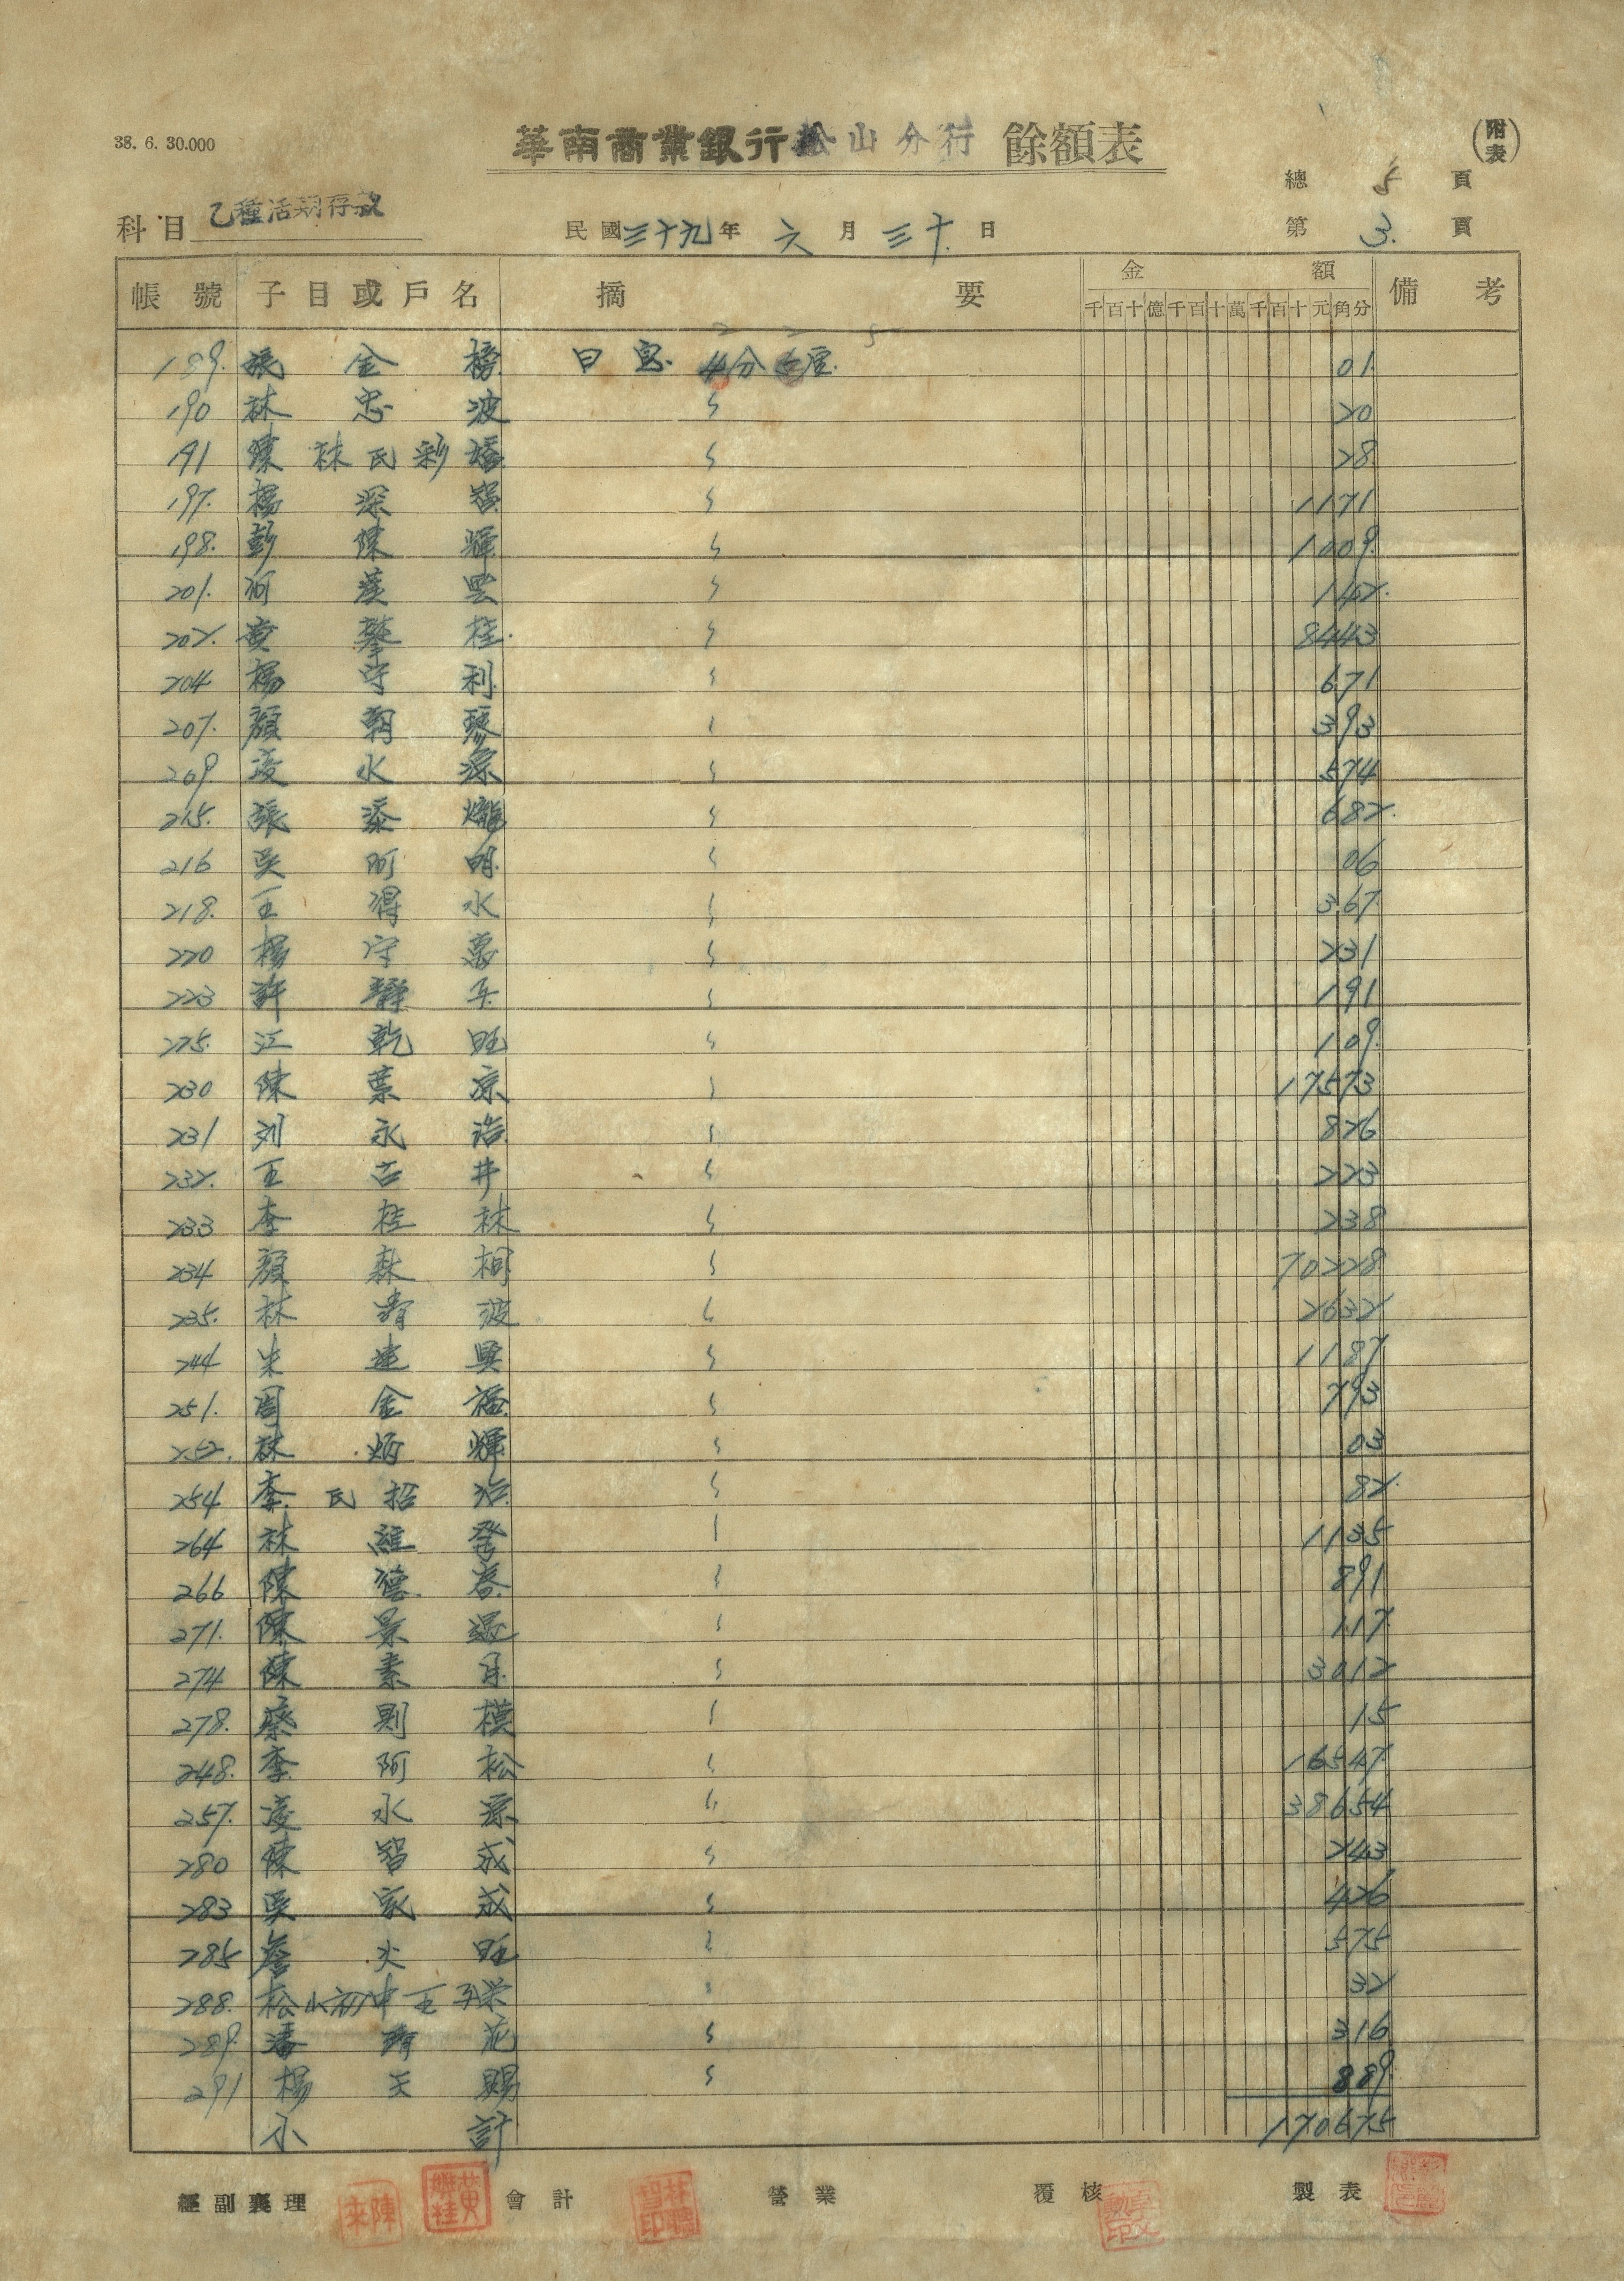 38. 6. 30.000
華南商業銀行松山分行 餘額表
(附表)
總 5 頁
科目 乙種活期存款
民國三十九年 六月三十日
第 3. 頁
帳號 子目或戶名 摘要 金額 備考
千百十億千百十萬千百十元角分
189. 張金榜 日息 分 厘 01
190 林忠波 〃 20
191 陳林氏彩 〃 28
197. 楊深智 〃 1171
198. 彭陳輝 〃 1009.
201. 何漢雲 〃 142.
202. 黄攀桂. 〃 8443
204 楊守利 〃 671
207. 顏朝琴 〃 393
209 凌水源 〃 574
215. 張添爐 〃 682.
216 吳阿明 〃 06
218. 王得水 〃 367.
220 楊守惠 〃 231
223 許靜 〃 191
225. 江乾旺 〃 109.
230 陳葉涼 〃 17573
231 刘永浩 〃 826
232. 王古井 〃 223
233 李桂林 〃 238
234 顏森桐 〃 70228
235. 林清波 〃 2632
244 朱連興 〃 1187
251. 周金福 〃 793
252. 林炳輝 〃 03
254 李氏招治 〃 82.
264 林維發 〃 1135
266 陳德春 〃 891
271. 陳景遠 〃 117.
274 陳素月 〃 3012
278. 蔡則模 〃 15
248. 李阿松 〃 16547.
257. 凌水源 〃 38654
280 陳智成 〃 243
283 吳家成 〃 426
285 詹火旺 〃 575
288. 松山初中王子榮 〃 32
289. 潘 花 〃 316
291 楊天賜 〃 889.
小計 170675
經副襄理 會計 營業 覆核 製表